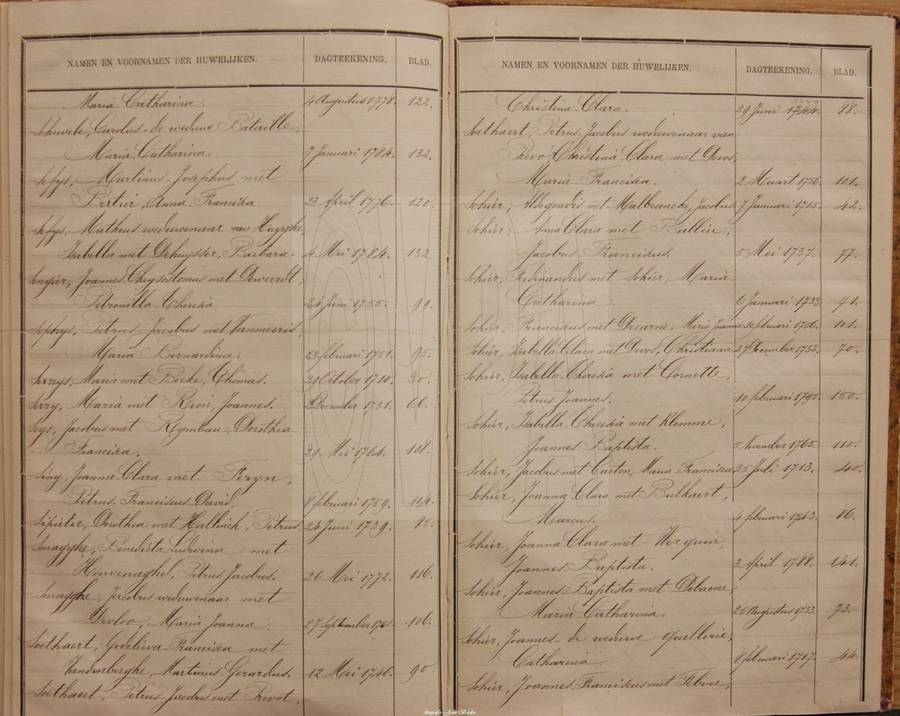 NAMEN EN VOORNAMEN DER HUWELIJKEN. DAGTEEKENING. BLAD.
Maria Catharina. 4 Augustus 1778. 122.
Carolus de weduwe Bataille,
Maria Catharina. 7 Januari 1784. 132.
Sefys, Martinus Josephus met
Bertier, Anna Francisca. 23 April 1776. 120.
Sefys, Matheus weduwenaar van Huyghe
Isabella met Dehuysser, Barbara. 4 Mei 1784. 132.
Joannes Chrysostomus met
Petronilla Theresia. Juni 1755. 99.
Petrus Jacobus met Vanmeeris
Maria Bernardina. 23 februari 1751. 95.
Maria met Becke, Thomas. 28 October 1710. 30.
Serry, Maria met Joannes. December 1731. 66.
Sys, Jacobus met Rymbau, Dorothea
Francisca. Mei 1764. 108.
Siny, Joanna Clara met Feryn,
Petrus Franciscus David. 8 februari 1759. 104.
Sipieter, Dorothea met Petrus. 24 Juni 1739. 85.
Smagghe, Benedicta Ludovina met
Houvenaghel, Petrus Jacobus. 26 Mei 1772. 116.
Smagghe, Jacobus weduwenaar met
Devloo, Maria Joanna. 27 September 106.
Soethaert, Godelieva Francisca met
Vandenberghe, Martinus Gerardus. 12 Mei 1746. 90
Soethaert, Petrus Jacobus met Prevot,
NAMEN EN VOORNAMEN DER HUWELIJKEN. DAGTEEKENING. BLAD.
Christina Clara. 29 Juni 1744. 88.
Soethaert, Petrus Jacobus weduwenaar van
Prevo, Christina Clara met Devos,
Maria Francisca. 2 Maart 1756. 101.
Sohier, met Malbrancke, Jacobus 7 Januari 1715. 42.
Sohier, Anna Clara met
Jacobus Franciscus. 5 Mei 1737. 77.
Sohier, Ferdinandus met Sohier, Maria
Catharina. 6 Januari 1733. 71.
Sohier, Franciscus met Maria Joanna februari 1756. 101.
Sohier, Isabella Clara met Devos, Christiaan 27 December 1732. 70.
Sohier, Isabella Theresia met Cornette,
Petrus Joannes. 10 februari 1795. 150.
Sohier, Isabella Theresia met Klemme,
Joannes Baptista. 5 November 1765. 110.
Sohier, Jacobus met Carton, Maria Francisca 25 Juli 1713. 40.
Sohier, Joanna Clara met Bulhaert,
Marcus. 4 februari 1743. 86.
Sohier, Joanna Clara met Werquin,
Joannes Baptista. 3 April 1788. 141.
Sohier, Joannes Baptista met Debaene,
Maria Catharina. 25 Augustus 1733. 73.
Sohier, Joannes de weduwe Quillerie,
Catharina. 8 februari 1717. 44.
Sohier, Joannes Franciscus met